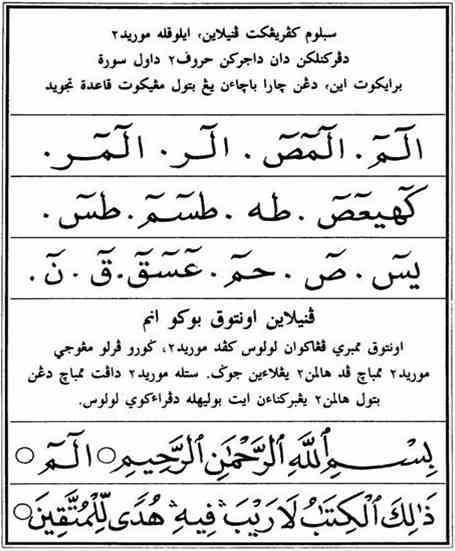 سبلوم کڤريڠکت ڤنيلاين، ايلوقله موريد٢
دڤرکنلکن دان داجرکن حروف٢ داول سورة
برايکوت اين، دڠن چارا باچاءن يڠ بتول مڠيکوت قاعدة تجويد
الٓمٓ . الٓمٓصٓ . الٓر . الٓمٓر.
كٓهيعٓصٓ . طه . طسٓمٓ . طسٓ.
يسٓ . صٓ . حمٓ . عٓسٓقٓ . قٓ . نٓ.
ڤنيلاين اونتوق بوکو انم
اونتوق ممبري ڤڠاکوان لولوس کڤد موريد٢، ݢورو ڤرلو مڠوجي
موريد٢ ممباچ ڤد هالمن٢ يڠلاءين جوݢ. ستله موريد٢ داڤت ممباچ دڠن
بتول هالمن٢ يڠبرکناءن ايت بوليهله دڤراءکوي لولوس.
بِسْمِ ٱللَّهِ ٱلرَّحْمَٰنِ ٱلرَّحِيمِ ○ الٓمٓ ○
ذَٰلِكَ ٱلْكِتَٰبُ لَا رَيْبَ ۛ فِيهِ ۛ هُدًى لِّلْمُتَّقِينَ ○